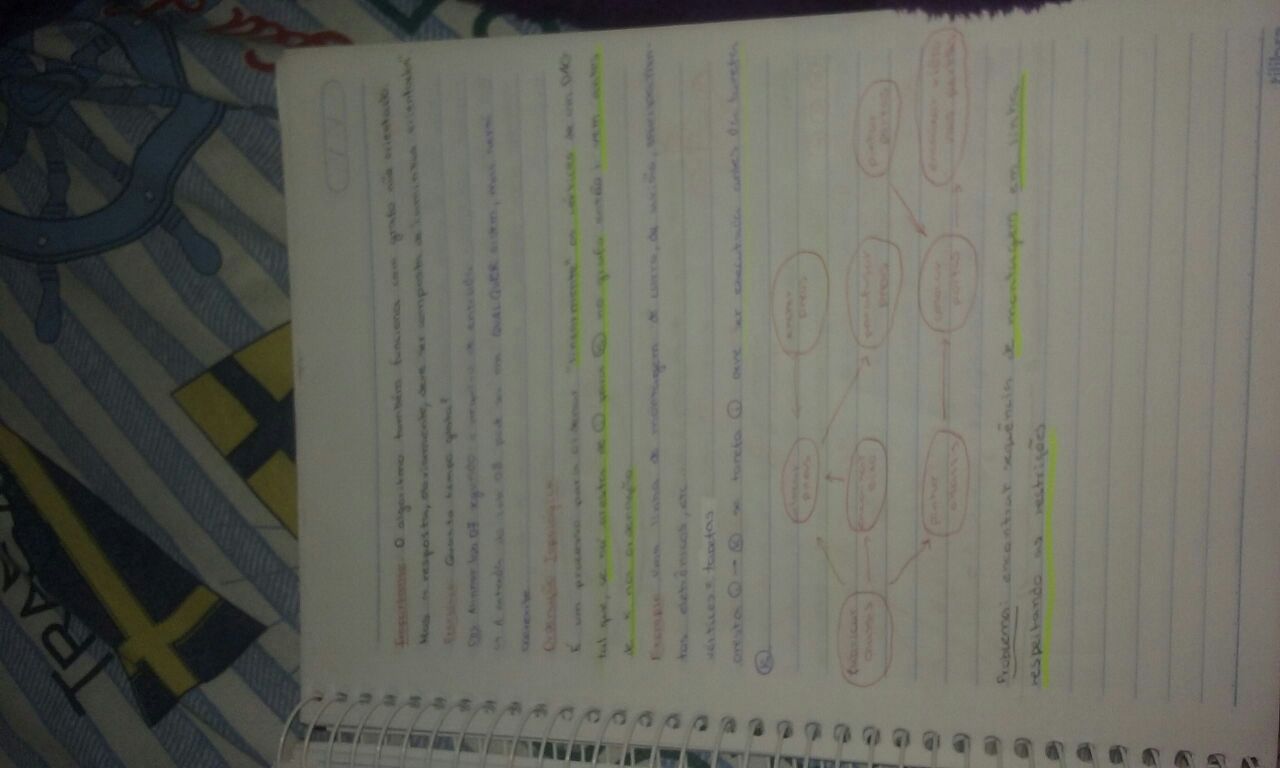 TRASA
Importante: O algoritmo também funciona com grafo não orientado.
Mas a resposta, obviamente, deve ser composta de caminhos orientados"
Exercício: Quanto tempo gasta?
a entrada do Lab 08 pode ser em QUALQUER ordem, mas será
coerente
Ordenação Topológica
É um processo para ordenar "linearmente" os vértices de um DAG
tal que, se há aresta de i para k no grafo então i vem antes
de k na ordenação
Exemplo: uma linha de montagem de carro, de avião,
tos eletrônicos, etc
vértices = tarefas
aresta i → k se tarefa i deve ser executada antes da tarefa
k
colocar pneus
encher pneus
fabricar chassis
encaixar eixo
parafusar pneus
pintar portas
pintar chassis
colocar portas
encaixar vidro nas portas
Problema: encontrar sequência de montagem em linha
respeitando as restrições
tilibra